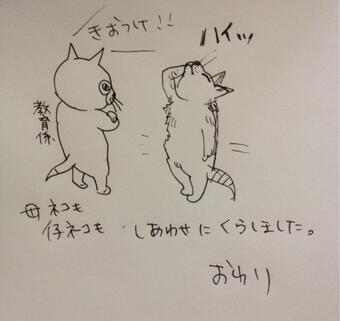 きおつけ!!
ハイッ
教育係
母ネコも
仔ネコも しあわせに くらしました。
おわり